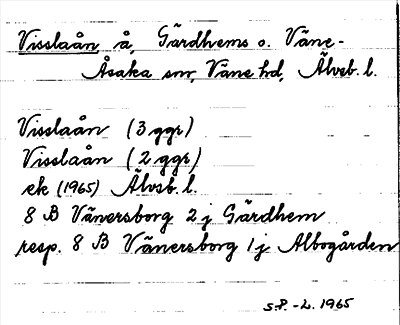 Visslaån, å, Gärdhems o. Väne-
Åsaka snr, Väne hd, Älvsb. l.
Visslaån (3 ggr)
Visslaån (2 ggr)
ek (1965) Älvsb. l.
8 B Vänersborg 2 j Gärdhem
resp. 8 B Vänersborg 1 j Albogården
S.P. -L. 1965